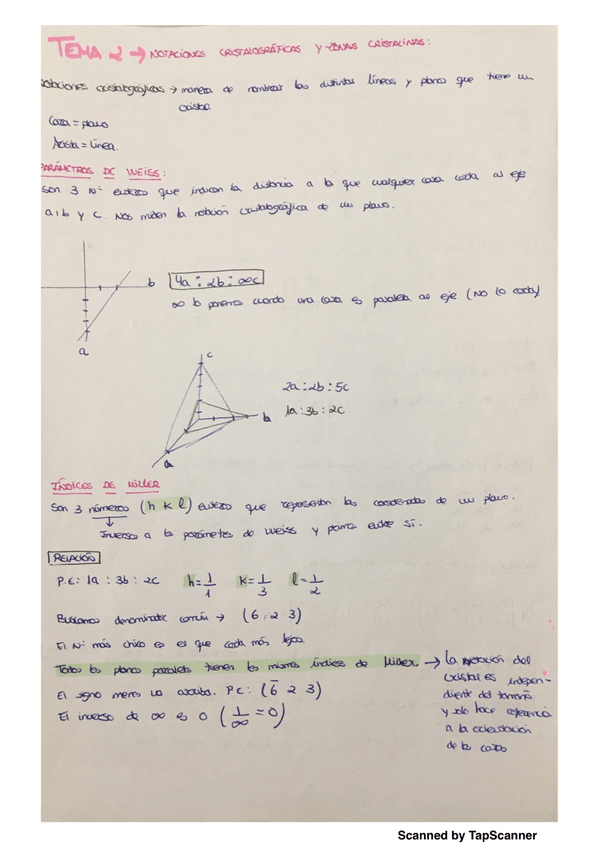 TEMA 2 → NOTACIONES CRISTALOGRÁFICAS Y ZONAS CRISTALINAS:
Notaciones cristalográficas → manera de nombrar las distintas líneas y planos que tiene un
cristal.
Cara = plano
Arista = línea.
PARÁMETROS DE WEISS:
Son 3 Nº enteros que indican la distancia a la que cualquier cara corta al eje
a, b y c. Nos miden la notación cristalográfica de un plano.
b
4a : 2b : ∞c
∞ lo ponemos cuando una cara es paralela al eje (No lo corta)
a
c
2a : 2b : 5c
b
1a : 3b : 2c
a
ÍNDICES DE MILLER
Son 3 números (h k l) enteros que representan las coordenadas de un plano.
Inverso a los parámetros de Weiss y primos entre sí.
RELACIÓN
P.E: 1a : 3b : 2c h = 1/1 k = 1/3 l = 1/2
Buscamos denominador común → (6, 2 3)
El Nº más chico es el que corta más lejos.
Todos los planos paralelos tienen los mismos índices de Miller. → La notación del
cristal es indepen-
diente del tamaño
y solo hace referencia
a la orientación
de las caras
El signo menos va arriba. P.E: (6̄ 2 3)
El inverso de ∞ es 0 (1/∞ = 0)
Scanned by TapScanner